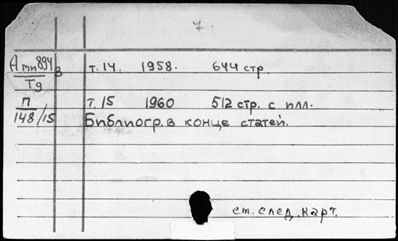 7.
Атн894з т.14. 1958. 644 стр.
Тд
П т.15 1960 512 стр. с илл.
148/15 Библиогр. в конце статей.
см. след. карт.